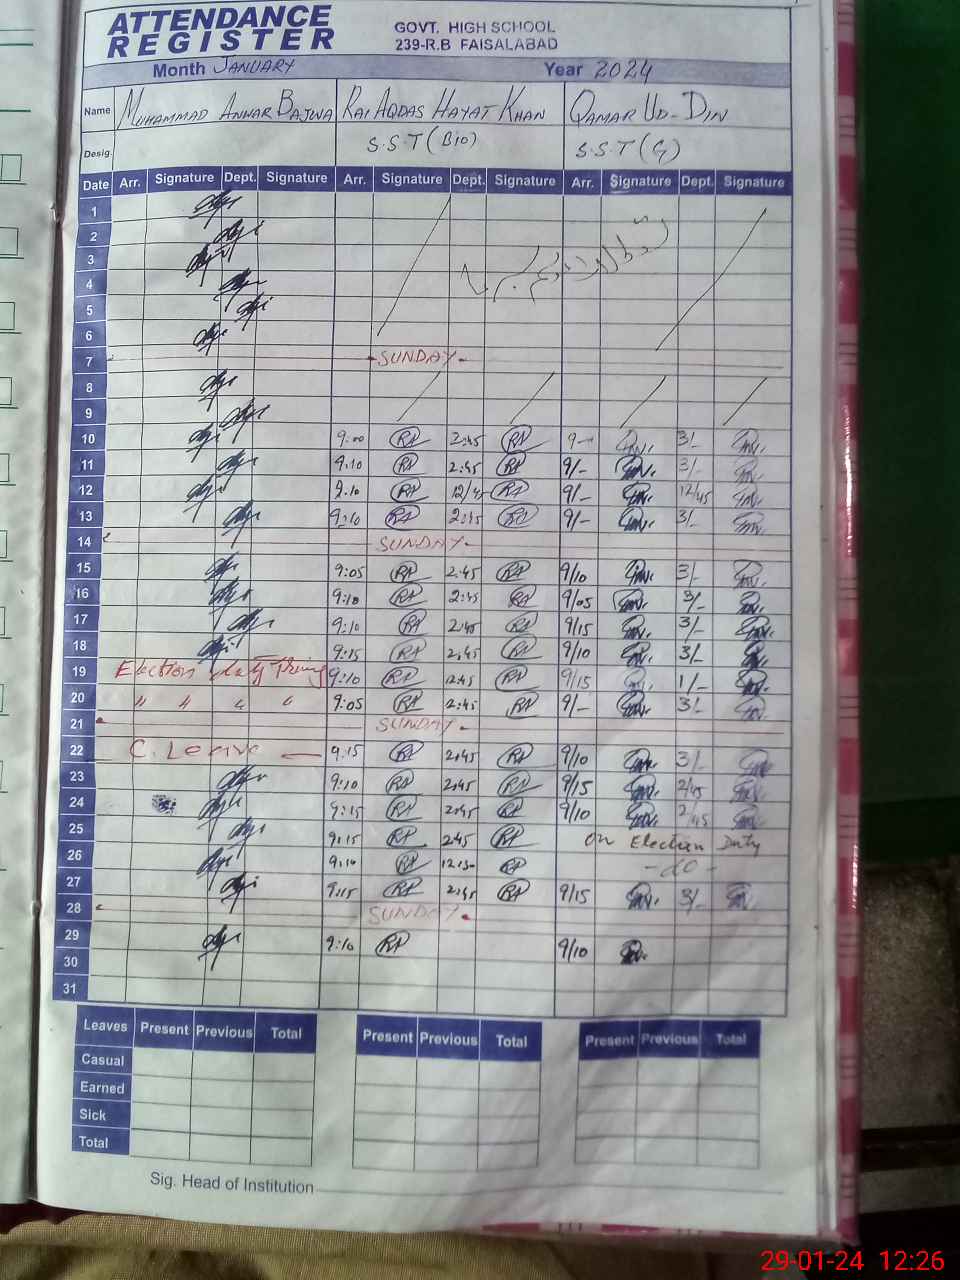 ATTENDANCE REGISTER
GOVT. HIGH SCHOOL
239-R.B FAISALABAD
Month JANUARY Year 2024
Name MUHAMMAD ANWAR BAJWA RAI AQDAS HAYAT KHAN QAMAR UD-DIN
Desig. S.S.T (BIO) S.S.T (G)
Date Arr. Signature Dept. Signature Arr. Signature Dept. Signature Arr. Signature Dept. Signature
1
2
3
4
5
6
7 SUNDAY
8
9
10 9:00 RA 2:45 RA 9- 3/-
11 9:10 RA 2:45 RA 9/- 3/-
12 9:10 RA 12/45 RA 9/- 12/45
13 9:10 RA 2:45 RA 9/- 3/-
14 SUNDAY
15 9:05 RA 2:45 RA 9/10 3/-
16 9:10 RA 2:45 RA 9/05 3/-
17 9:10 RA 2:45 RA 9/15 3/-
18 9:15 RA 2:45 RA 9/10 3/-
19 Election duty 9:10 RA 2:45 RA 9/15 1/-
20 " " " " 9:05 RA 2:45 RA 9/- 3/-
21 SUNDAY
22 C. Leave 9.15 RA 2:45 RA 9/10 3/-
23 9:10 RA 2:45 RA 9/15 2/45
24 9:15 RA 2:45 RA 9/10 2/45
25 9:15 RA 2:45 RA On Election Duty
26 9:10 RA 12:30 RA -do-
27 9:15 RA 2:45 RA 9/15 3/-
28 SUNDAY
29 9:10 RA 9/10
30
31
Leaves Present Previous Total Present Previous Total Present Previous Total
Casual
Earned
Sick
Total
Sig. Head of Institution
29-01-24 12:26